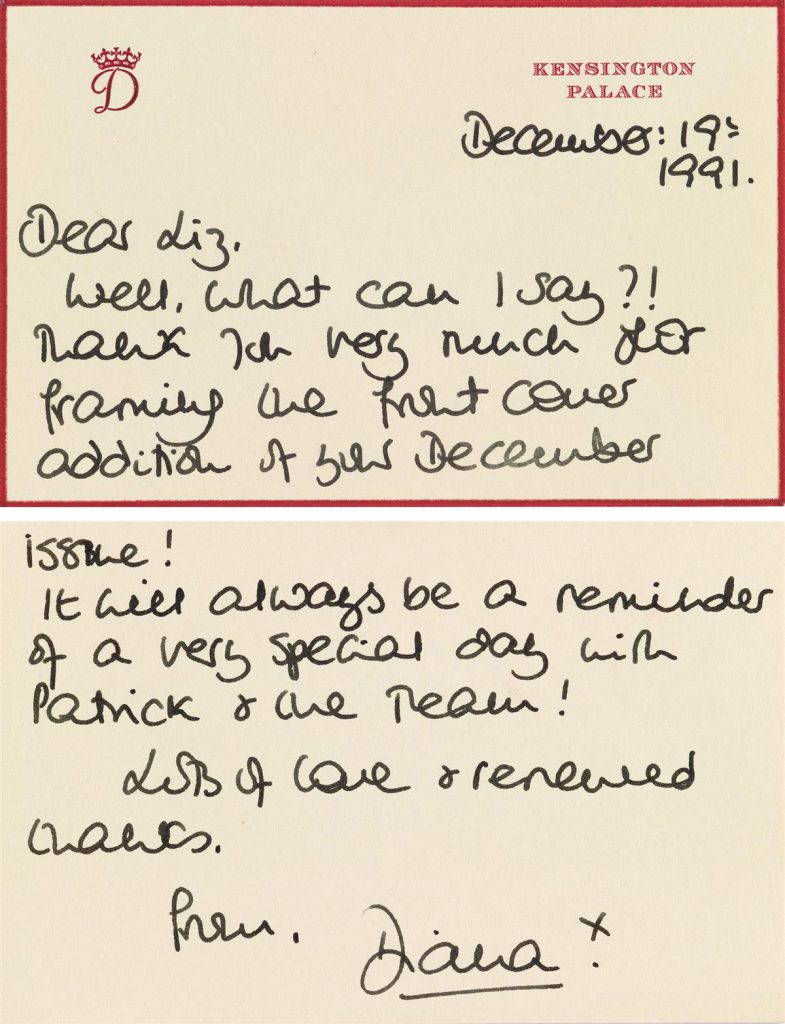 D
KENSINGTON
PALACE
December: 19th
1991.
Dear Liz.
Well, what can I say?!
Thank you very much for
framing the front cover
addition of your December
issue!
It will always be a reminder
of a very special day with
Patrick & the Team!
Lots of love & renewed
thanks.
from.
Diana x